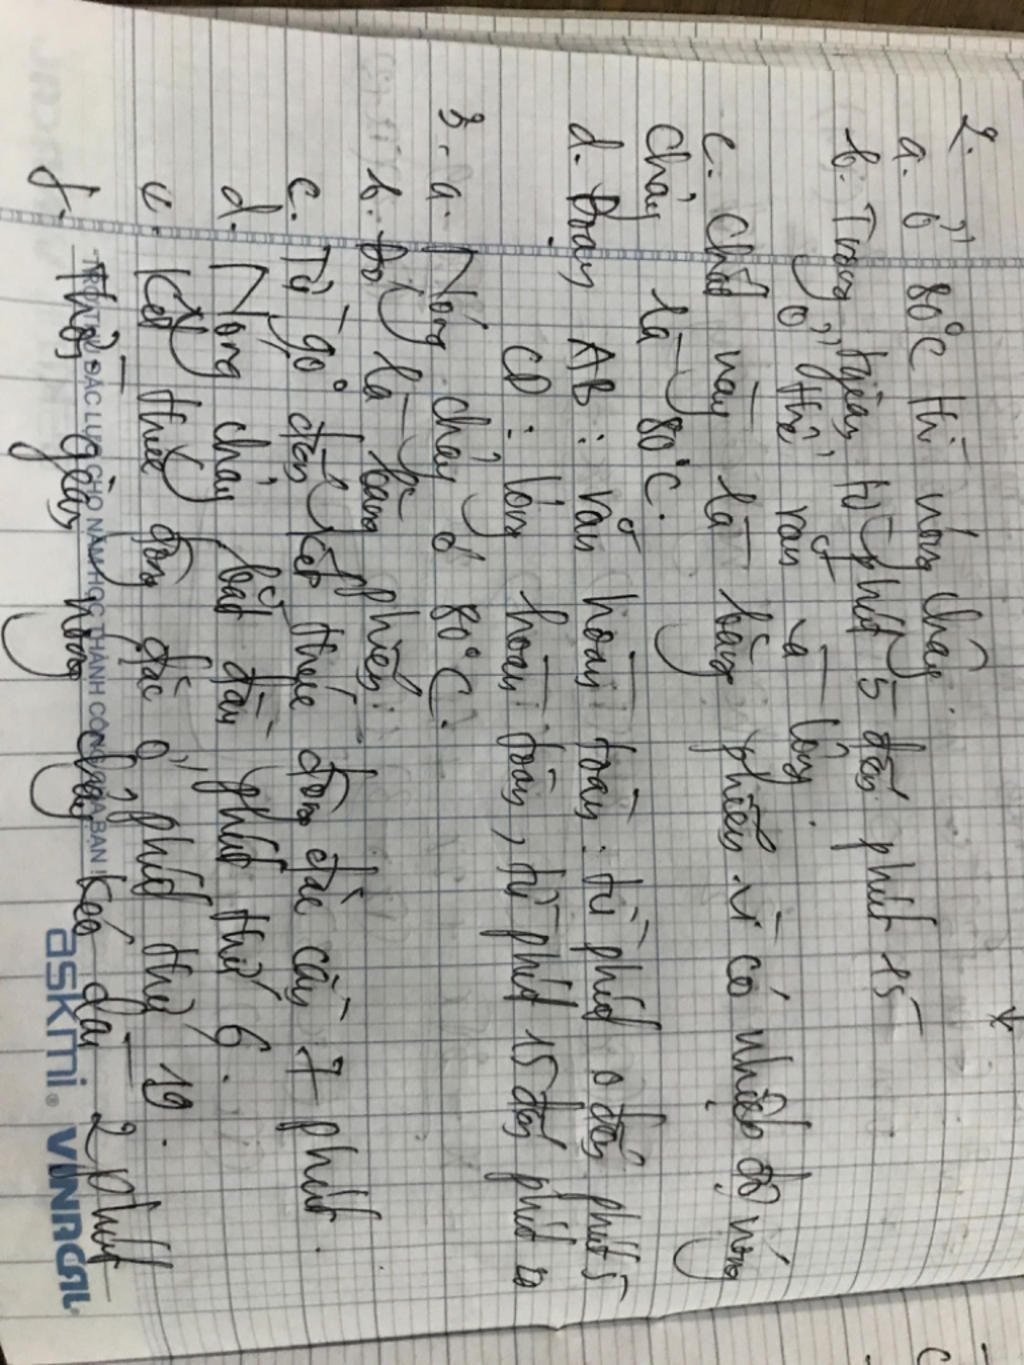 2.
a. Ở 80°C thì nóng chảy.
b. Trong khoảng từ phút 5 đến phút 15
ở thể rắn và lỏng.
c. Chất này là băng phiến vì có nhiệt độ nóng
chảy là 80°C.
d. Đoạn AB : rắn hoàn toàn. từ phút 0 đến phút 5
CD : lỏng hoàn toàn, từ phút 15 đến phút 20
3. a. Nóng chảy ở 80°C.
b. Đó là băng phiến.
c. Từ 90° đến kết thúc đông đặc cần 7 phút.
d. Nóng chảy bắt đầu phút thứ 6.
e. Kết thúc đông đặc ở phút thứ 19.
f. Thời gian nóng chảy kéo dài 2 phút
TRỢ THỦ ĐẮC LỰC CHO NĂM HỌC THÀNH CÔNG CỦA BẠN!
askmi. VINACAL